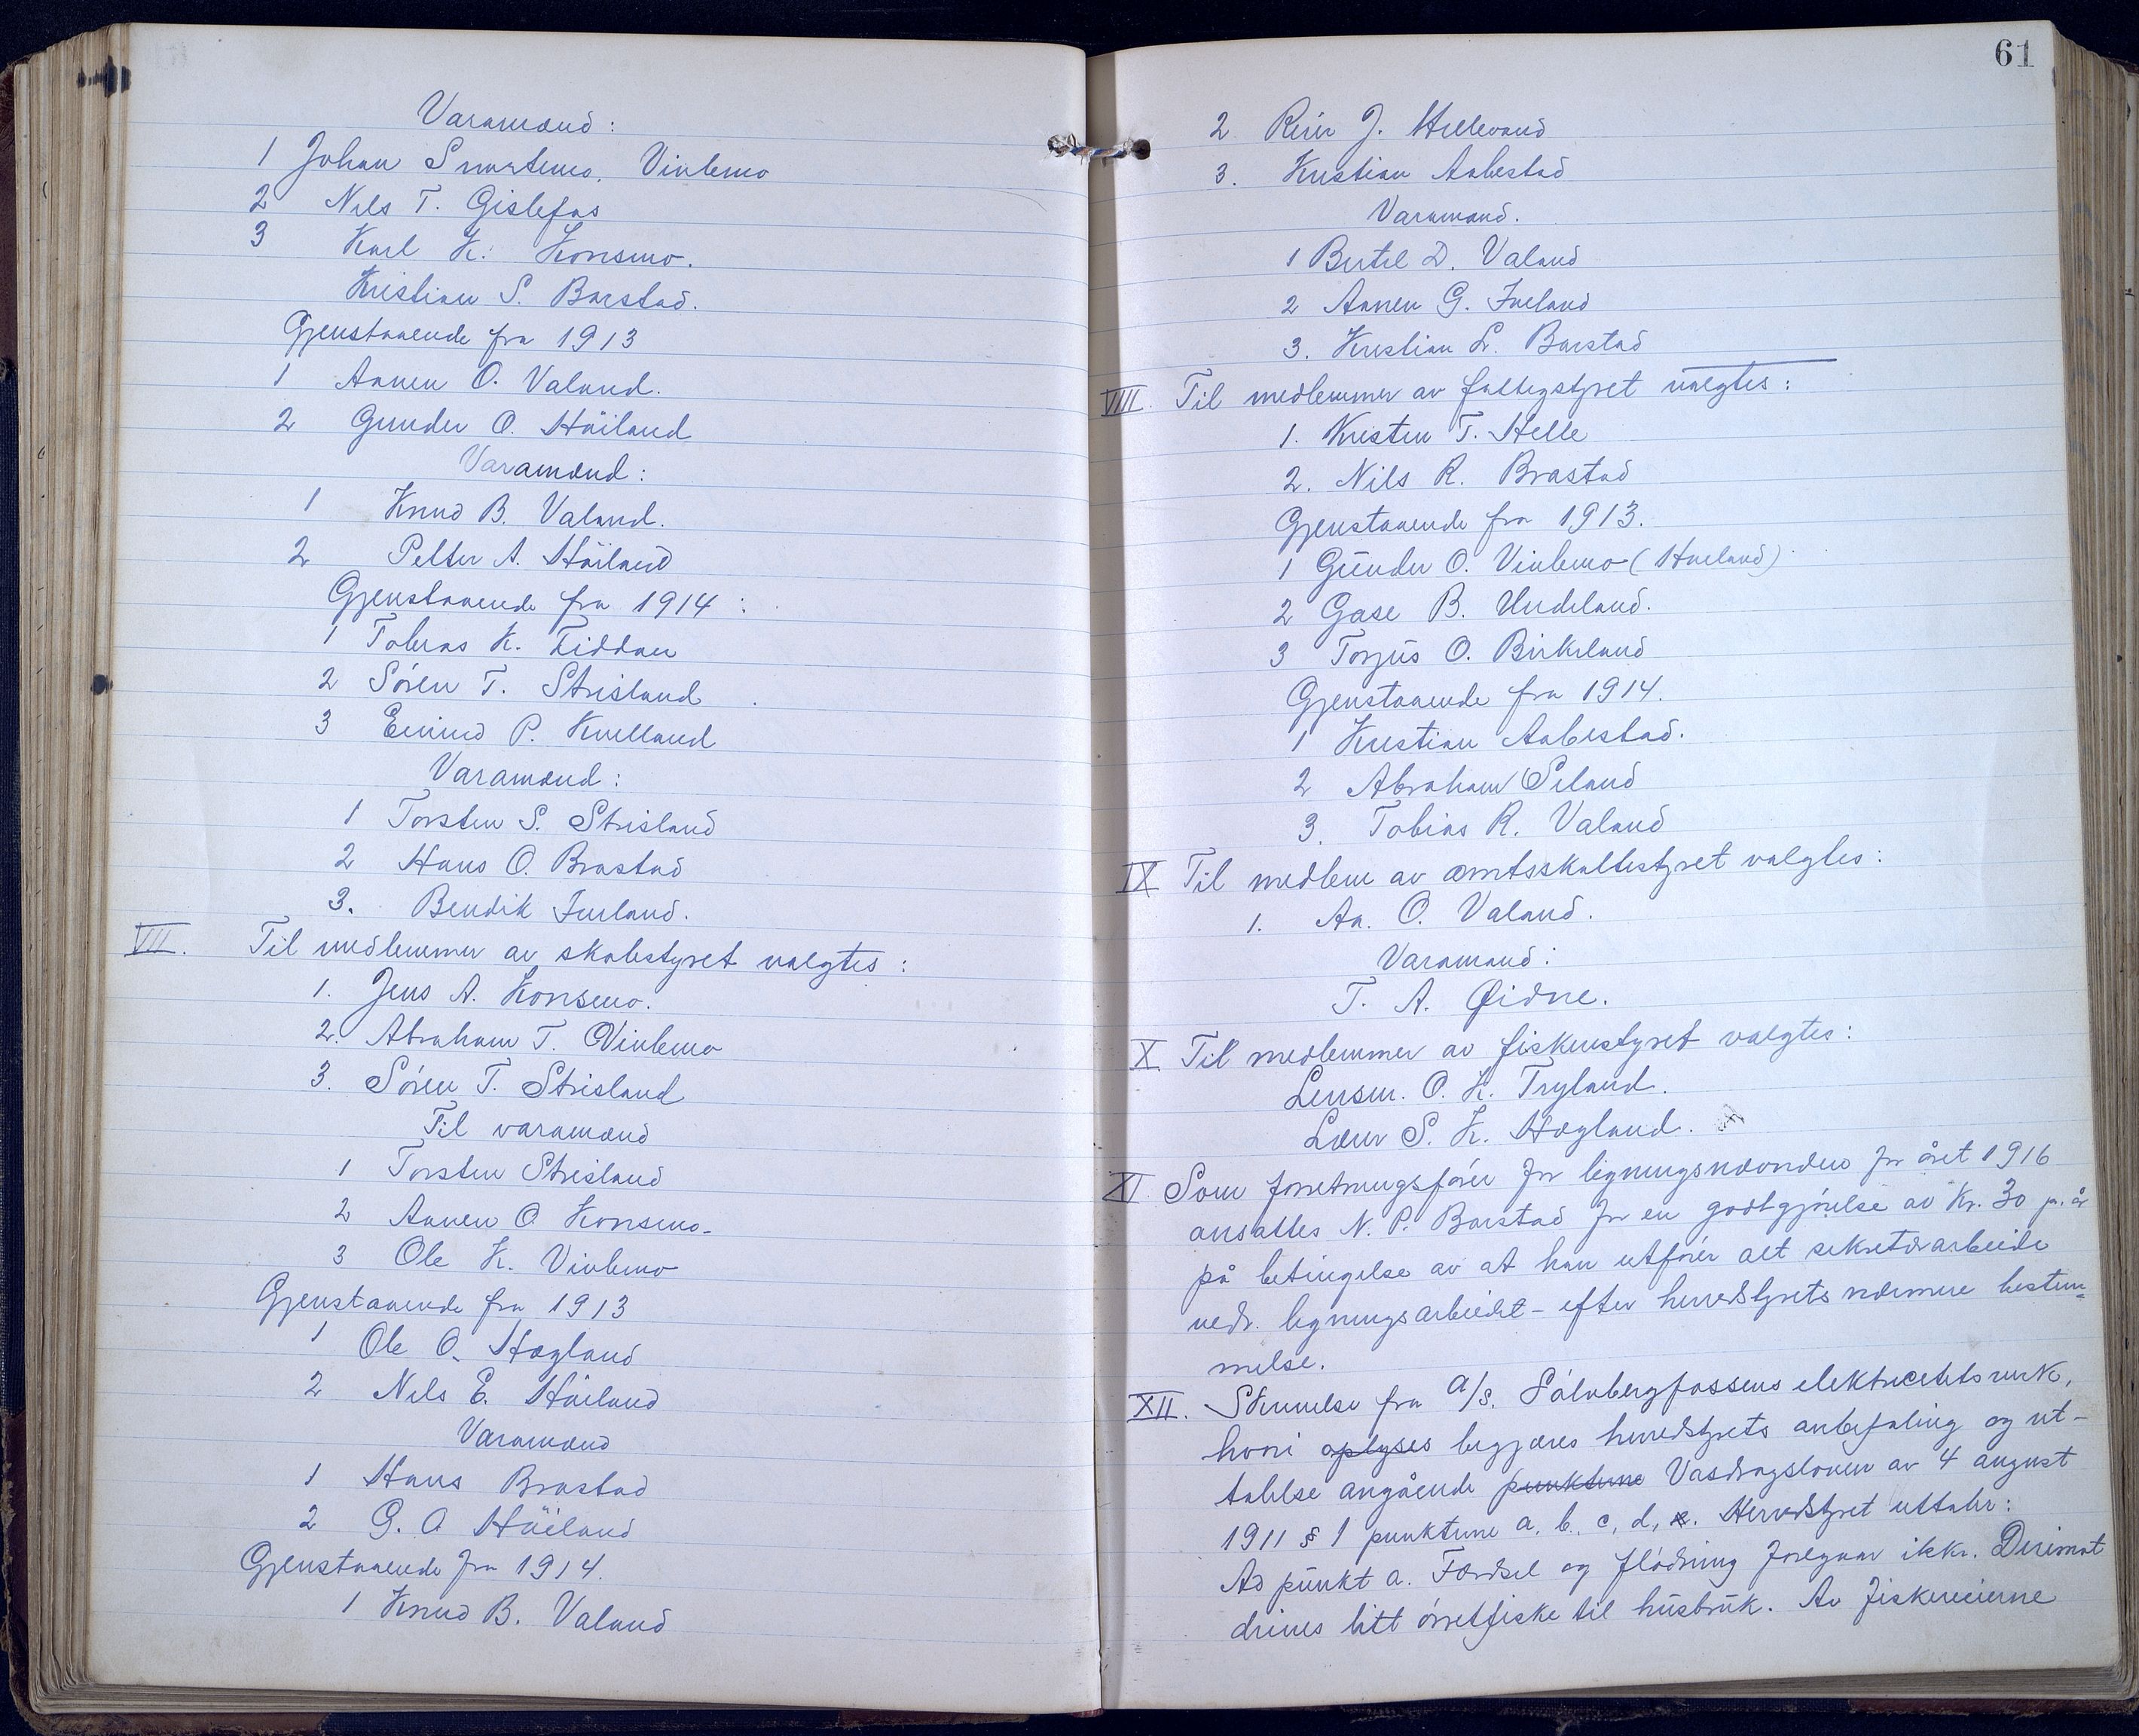 Varamænd:
1 Johan Smestemo, Vivlemo
2 Nils T. Gislefos
3 Karl K. Konsmo.
Kristian S. Barstad.
Gjenstaaende fra 1913
1 Aanen O. Valand.
2 Gunder O. Häiland
Varamænd:
1 Knud B. Valand.
2 Petter A. Häiland
Gjenstaaende fra 1914:
1 Tobias K. Fiddan
2 Sören T. Strisland
3 Eivind P. Kvelland
Varamænd:
1 Torsten S. Strisland
2 Hans O. Brastad
3. Bendik Iveland.
VII. Til medlemmer av skolestyret valgtes:
1. Jens A. Konsmo.
2. Abraham T. Vivlemo
3. Sören T. Strisland
Til varamænd
1 Torsten Strisland
2 Aanen O. Konsmo.
3 Ole K. Vivlemo
Gjenstaaende fra 1913
1 Ole O. Hægland
2 Nils E. Häiland
Varamænd
1 Hans Brastad
2 G. O Häiland
Gjenstaaende fra 1914.
1 Knud B. Valand
61
2 Reier J. Hellevand
3. Kristian Aabestad
Varamænd.
1 Bertel D. Valand
2 Aanen G. Iveland
3. Kristian L. Barstad
VIII. Til medlemmer av fattigstyret valgtes:
1. Kristen T. Helle
2. Nils R. Brastad
Gjenstaaende fra 1913.
1 Gunder O. Vivlemo (Hæeland)
2 Gase B. Undeland.
3 Torjus O. Birkeland
Gjenstaaende fra 1914.
1 Kristian Aabestad.
2 Abraham Seland
3. Tobias R. Valand
IX Til medlem av amtsskattestyret valgtes:
1. Aa. O. Valand.
Varamand:
T. A. Øidne.
X. Til medlemmer av fiskeristyret valgtes:
Lensm. O. K. Tryland.
Lærer S. K. Hægland.
XI. Som forretningsförer for ligningsnævnden for året 1916
ansattes N. P. Barstad for en godtgjörelse av Kr. 30 p. år
på betingelse av at han utförer alt sekretærarbeide
vedr. ligningsarbeidet - efter herredstyrets nærmere bestem=
melse.
XII. Skrivelse fra A/S. Sålvbergfossens elektricitetsverk,
hvori oplyses begjæres herredstyrets anbefaling og ut-
talelse angående punktene Vasdragsloven av 4 august
1911 § 1 punktene a, b, c, d, e. Herredstyret uttaler:
Ad punkt a. Færdsel og flödning foregaar ikke. Derimot
drives litt örretfiske til husbruk. Av fiskeeierne